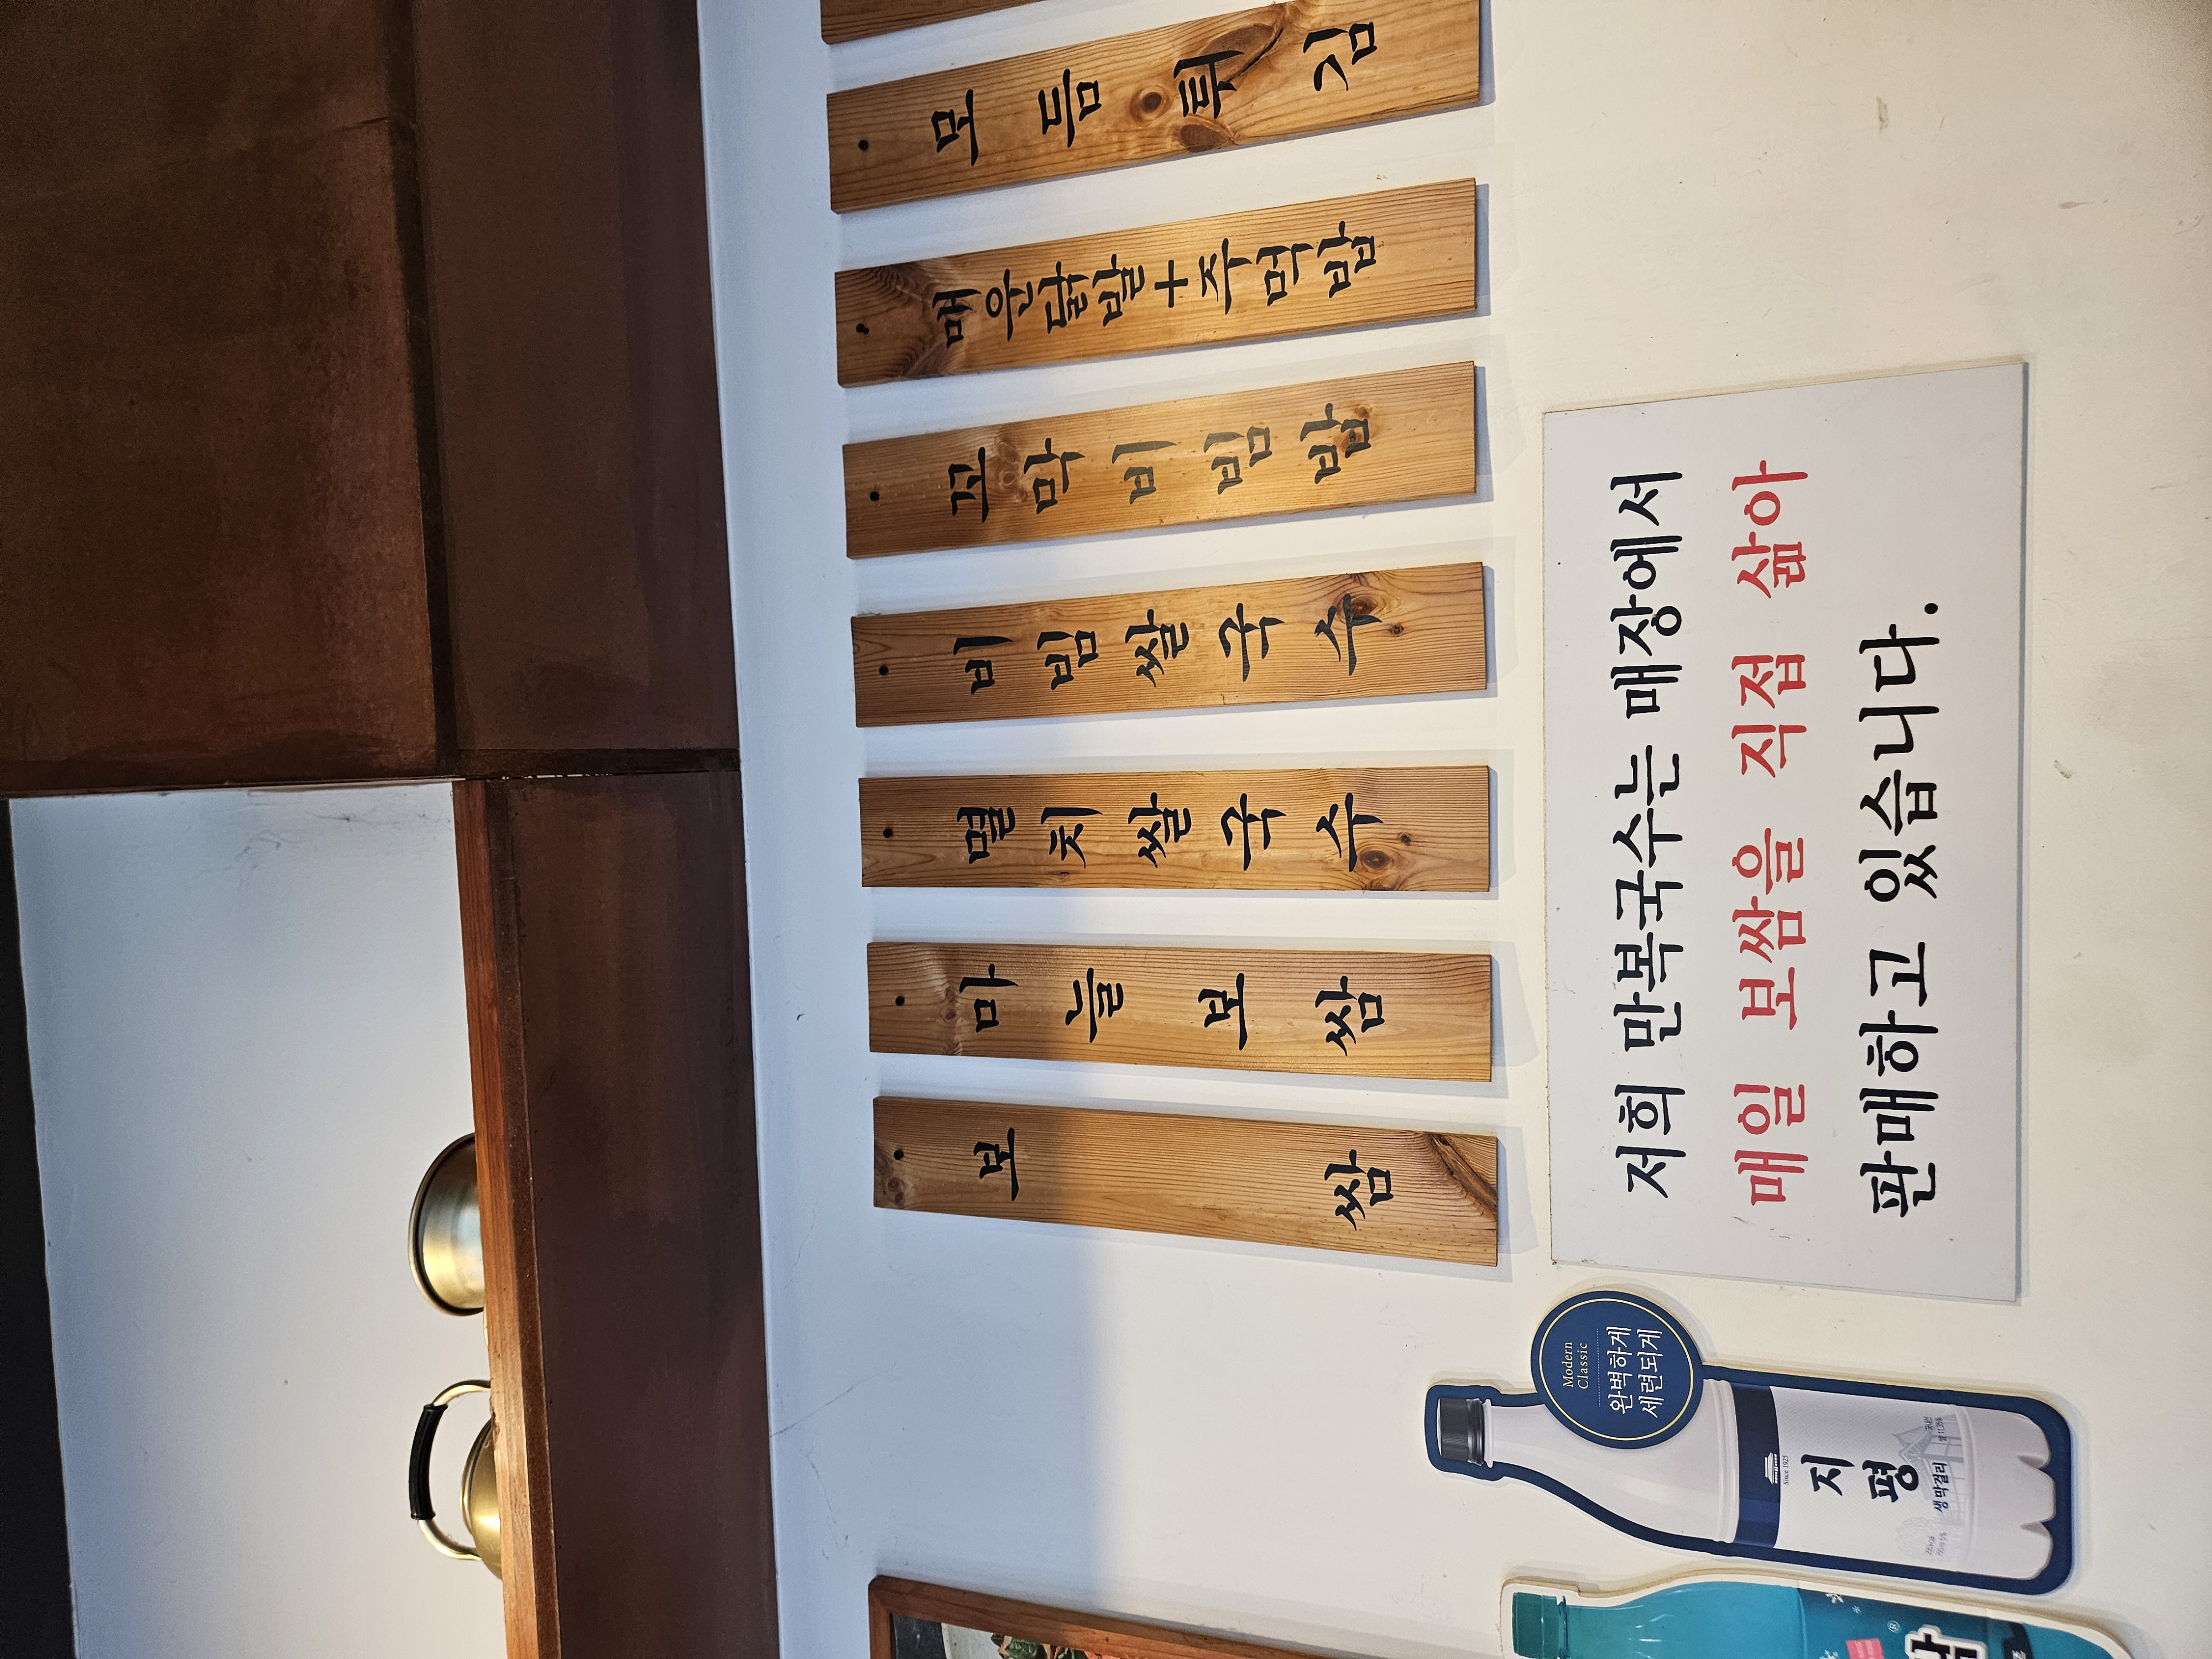 보쌈
마늘보쌈
멸치쌀국수
비빔쌀국수
꼬막비빔밥
매운닭발+주먹밥
모듬튀김
저희 만복국수는 매장에서
매일 보쌈을 직접 삶아
판매하고 있습니다.
Modern
Classic
완벽하게
세련되게
Since 1925
지평
생막걸리